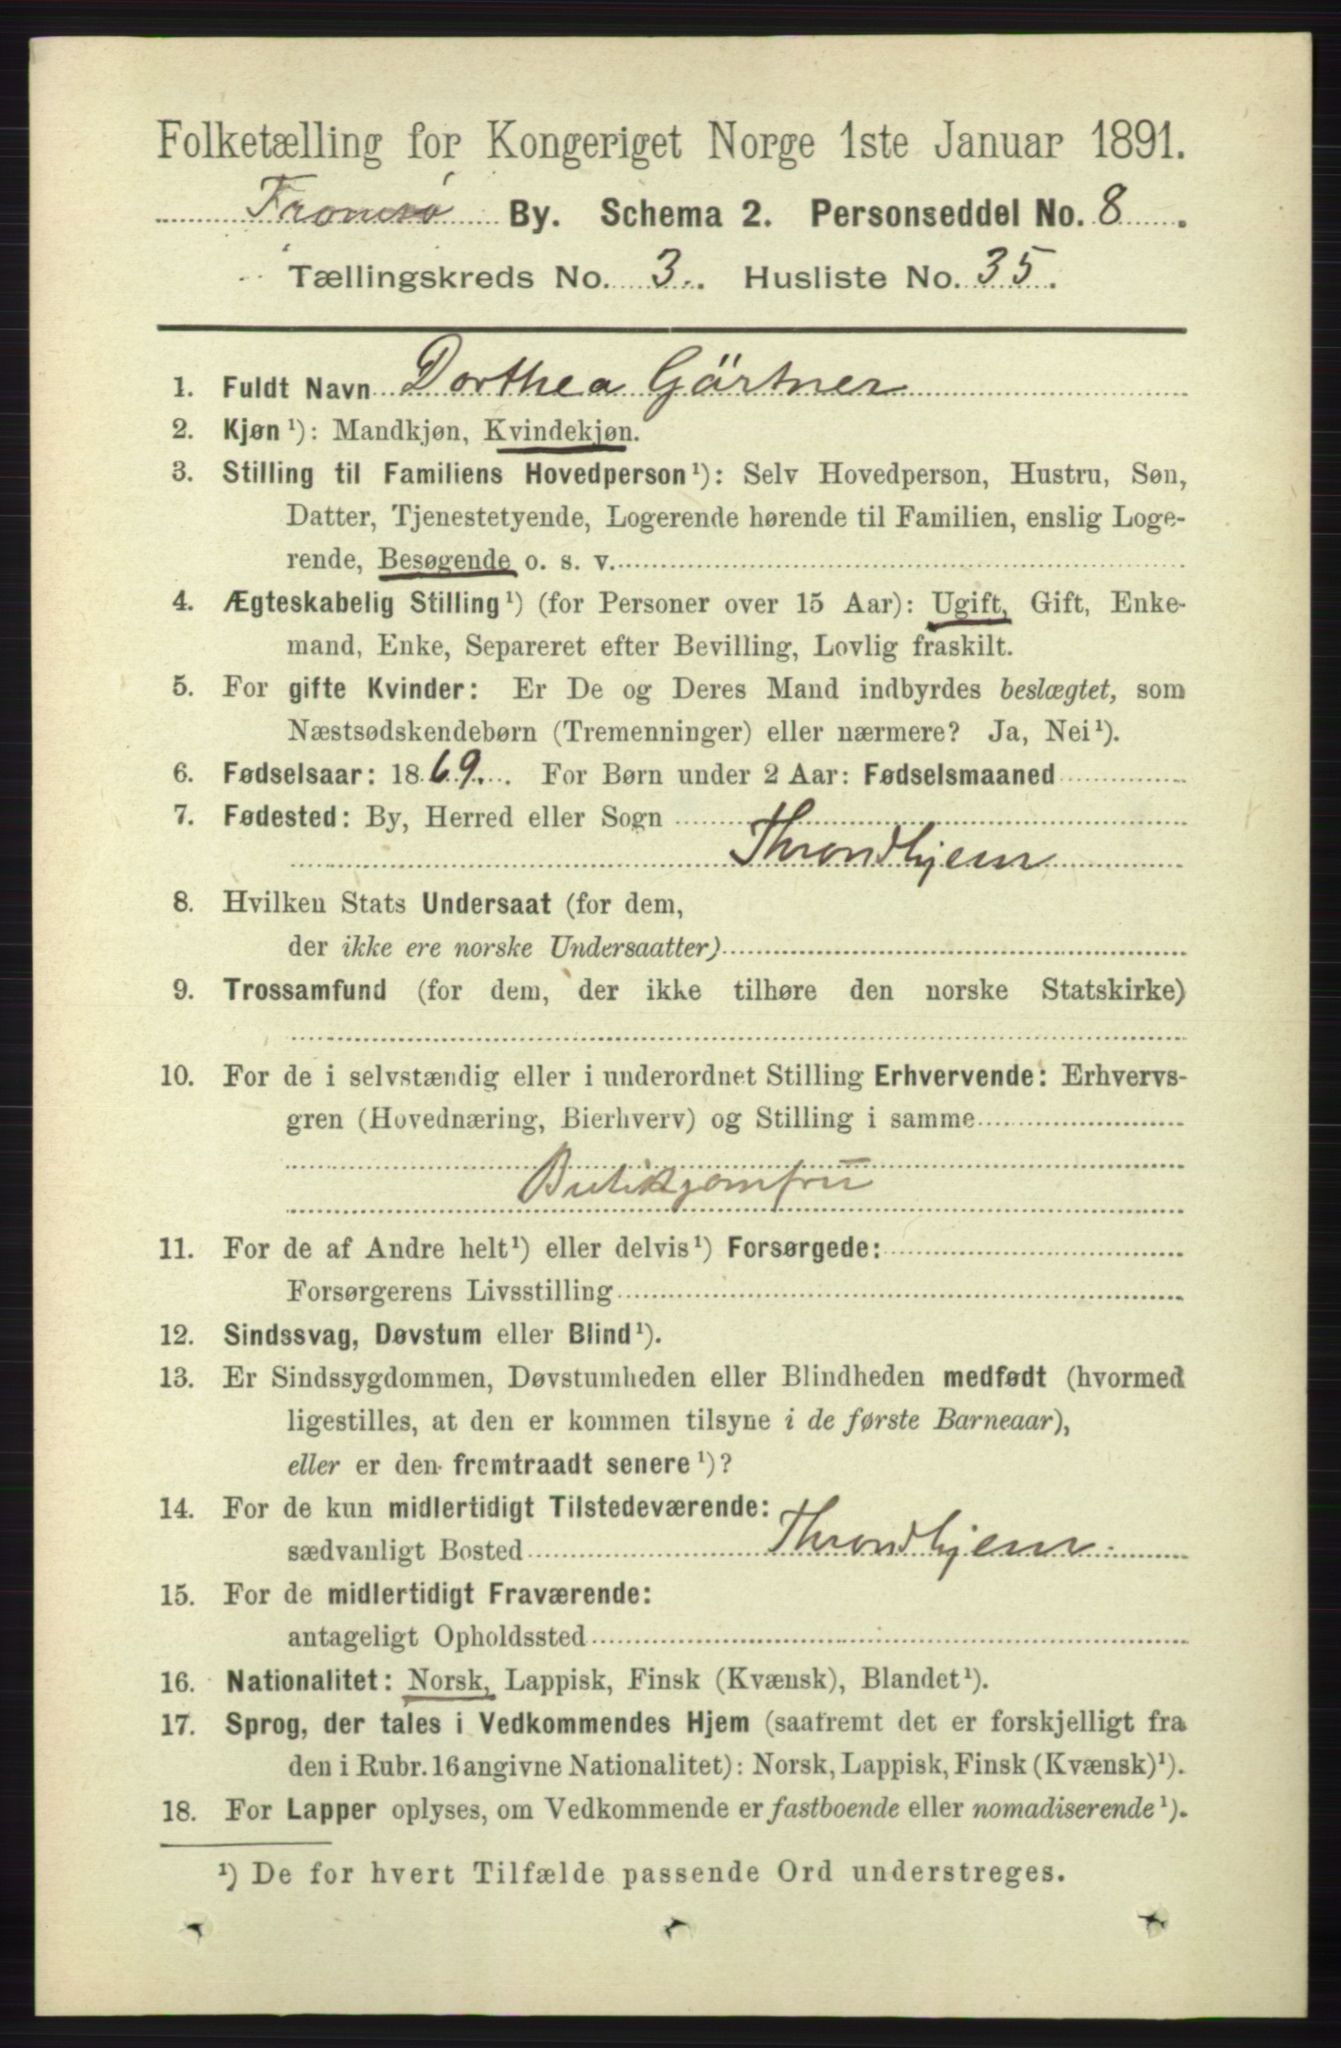 Folketælling for Kongeriget Norge 1ste Januar 1891.
Tromsø By. Schema 2. Personseddel No. 8.
Tællingskreds No. 3. Husliste No. 35.
1. Fuldt Navn Dorthea Gärtner
2. Kjøn¹): Mandkjøn, Kvindekjøn.
3. Stilling til Familiens Hovedperson¹): Selv Hovedperson, Hustru, Søn,
Datter, Tjenestetyende, Logerende hørende til Familien, enslig Loge-
rende, Besøgende o. s. v.
4. Ægteskabelig Stilling¹) (for Personer over 15 Aar): Ugift, Gift, Enke-
mand, Enke, Separeret efter Bevilling, Lovlig fraskilt.
5. For gifte Kvinder: Er De og Deres Mand indbyrdes beslægtet, som
Næstsødskendebørn (Tremenninger) eller nærmere? Ja, Nei¹).
6. Fødselsaar: 1869. For Børn under 2 Aar: Fødselsmaaned
7. Fødested: By, Herred eller Sogn
Throndhjem
8. Hvilken Stats Undersaat (for dem,
der ikke ere norske Undersaatter)
9. Trossamfund (for dem, der ikke tilhøre den norske Statskirke)
10. For de i selvstændig eller i underordnet Stilling Erhvervende: Erhvervs-
gren (Hovednæring, Bierhverv) og Stilling i samme
Butikjomfru
11. For de af Andre helt¹) eller delvis¹) Forsørgede:
Forsørgerens Livsstilling
12. Sindssvag, Døvstum eller Blind¹).
13. Er Sindssygdommen, Døvstumheden eller Blindheden medfødt (hvormed
ligestilles, at den er kommen tilsyne i de første Barneaar),
eller er den fremtraadt senere¹)?
14. For de kun midlertidigt Tilstedeværende:
sædvanligt Bosted Throndhjem.
15. For de midlertidigt Fraværende:
antageligt Opholdssted
16. Nationalitet: Norsk, Lappisk, Finsk (Kvænsk), Blandet¹).
17. Sprog, der tales i Vedkommendes Hjem (saafremt det er forskjelligt fra
den i Rubr. 16 angivne Nationalitet): Norsk, Lappisk, Finsk (Kvænsk)¹).
18. For Lapper oplyses, om Vedkommende er fastboende eller nomadiserende¹).
¹) De for hvert Tilfælde passende Ord understreges.